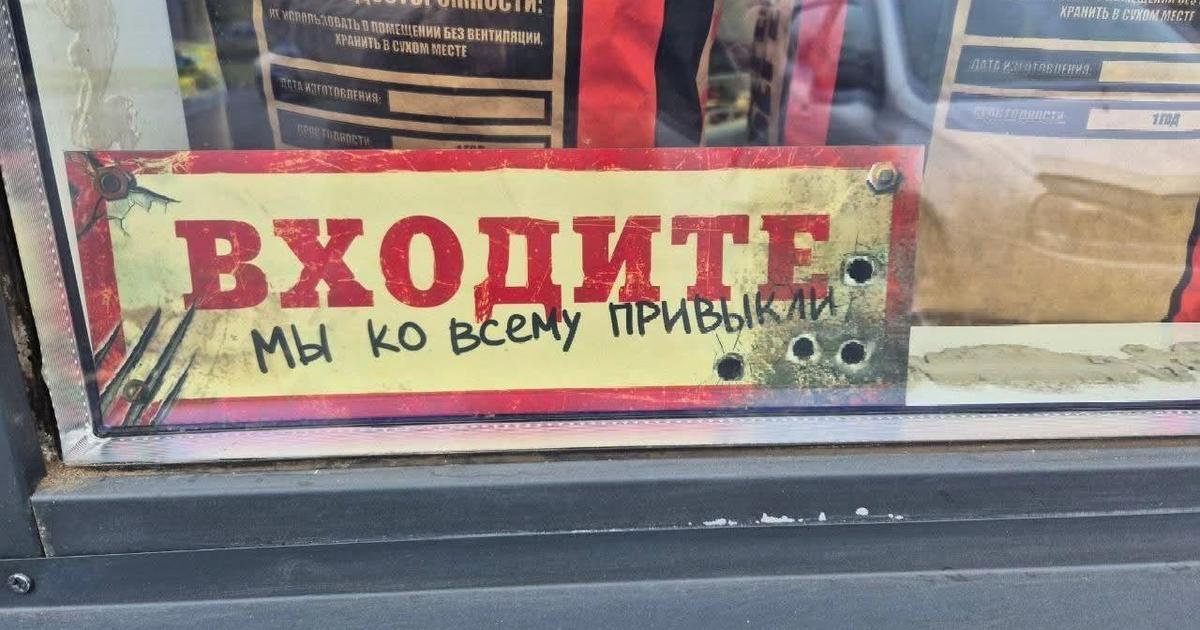 ДОСТОРОННОСТИ:
НЕ ИСПОЛЬЗОВАТЬ В ПОМЕЩЕНИИ БЕЗ ВЕНТИЛЯЦИИ,
ХРАНИТЬ В СУХОМ МЕСТЕ
ДАТА ИЗГОТОВЛЕНИЯ:
СРОК ГОДНОСТИ
1 ГОД
ХРАНИТЬ В СУХОМ МЕСТЕ
ДАТА ИЗГОТОВЛЕНИЯ:
СРОК ГОДНОСТИ
1 ГОД
ВХОДИТЕ
МЫ КО ВСЕМУ ПРИВЫКЛИ